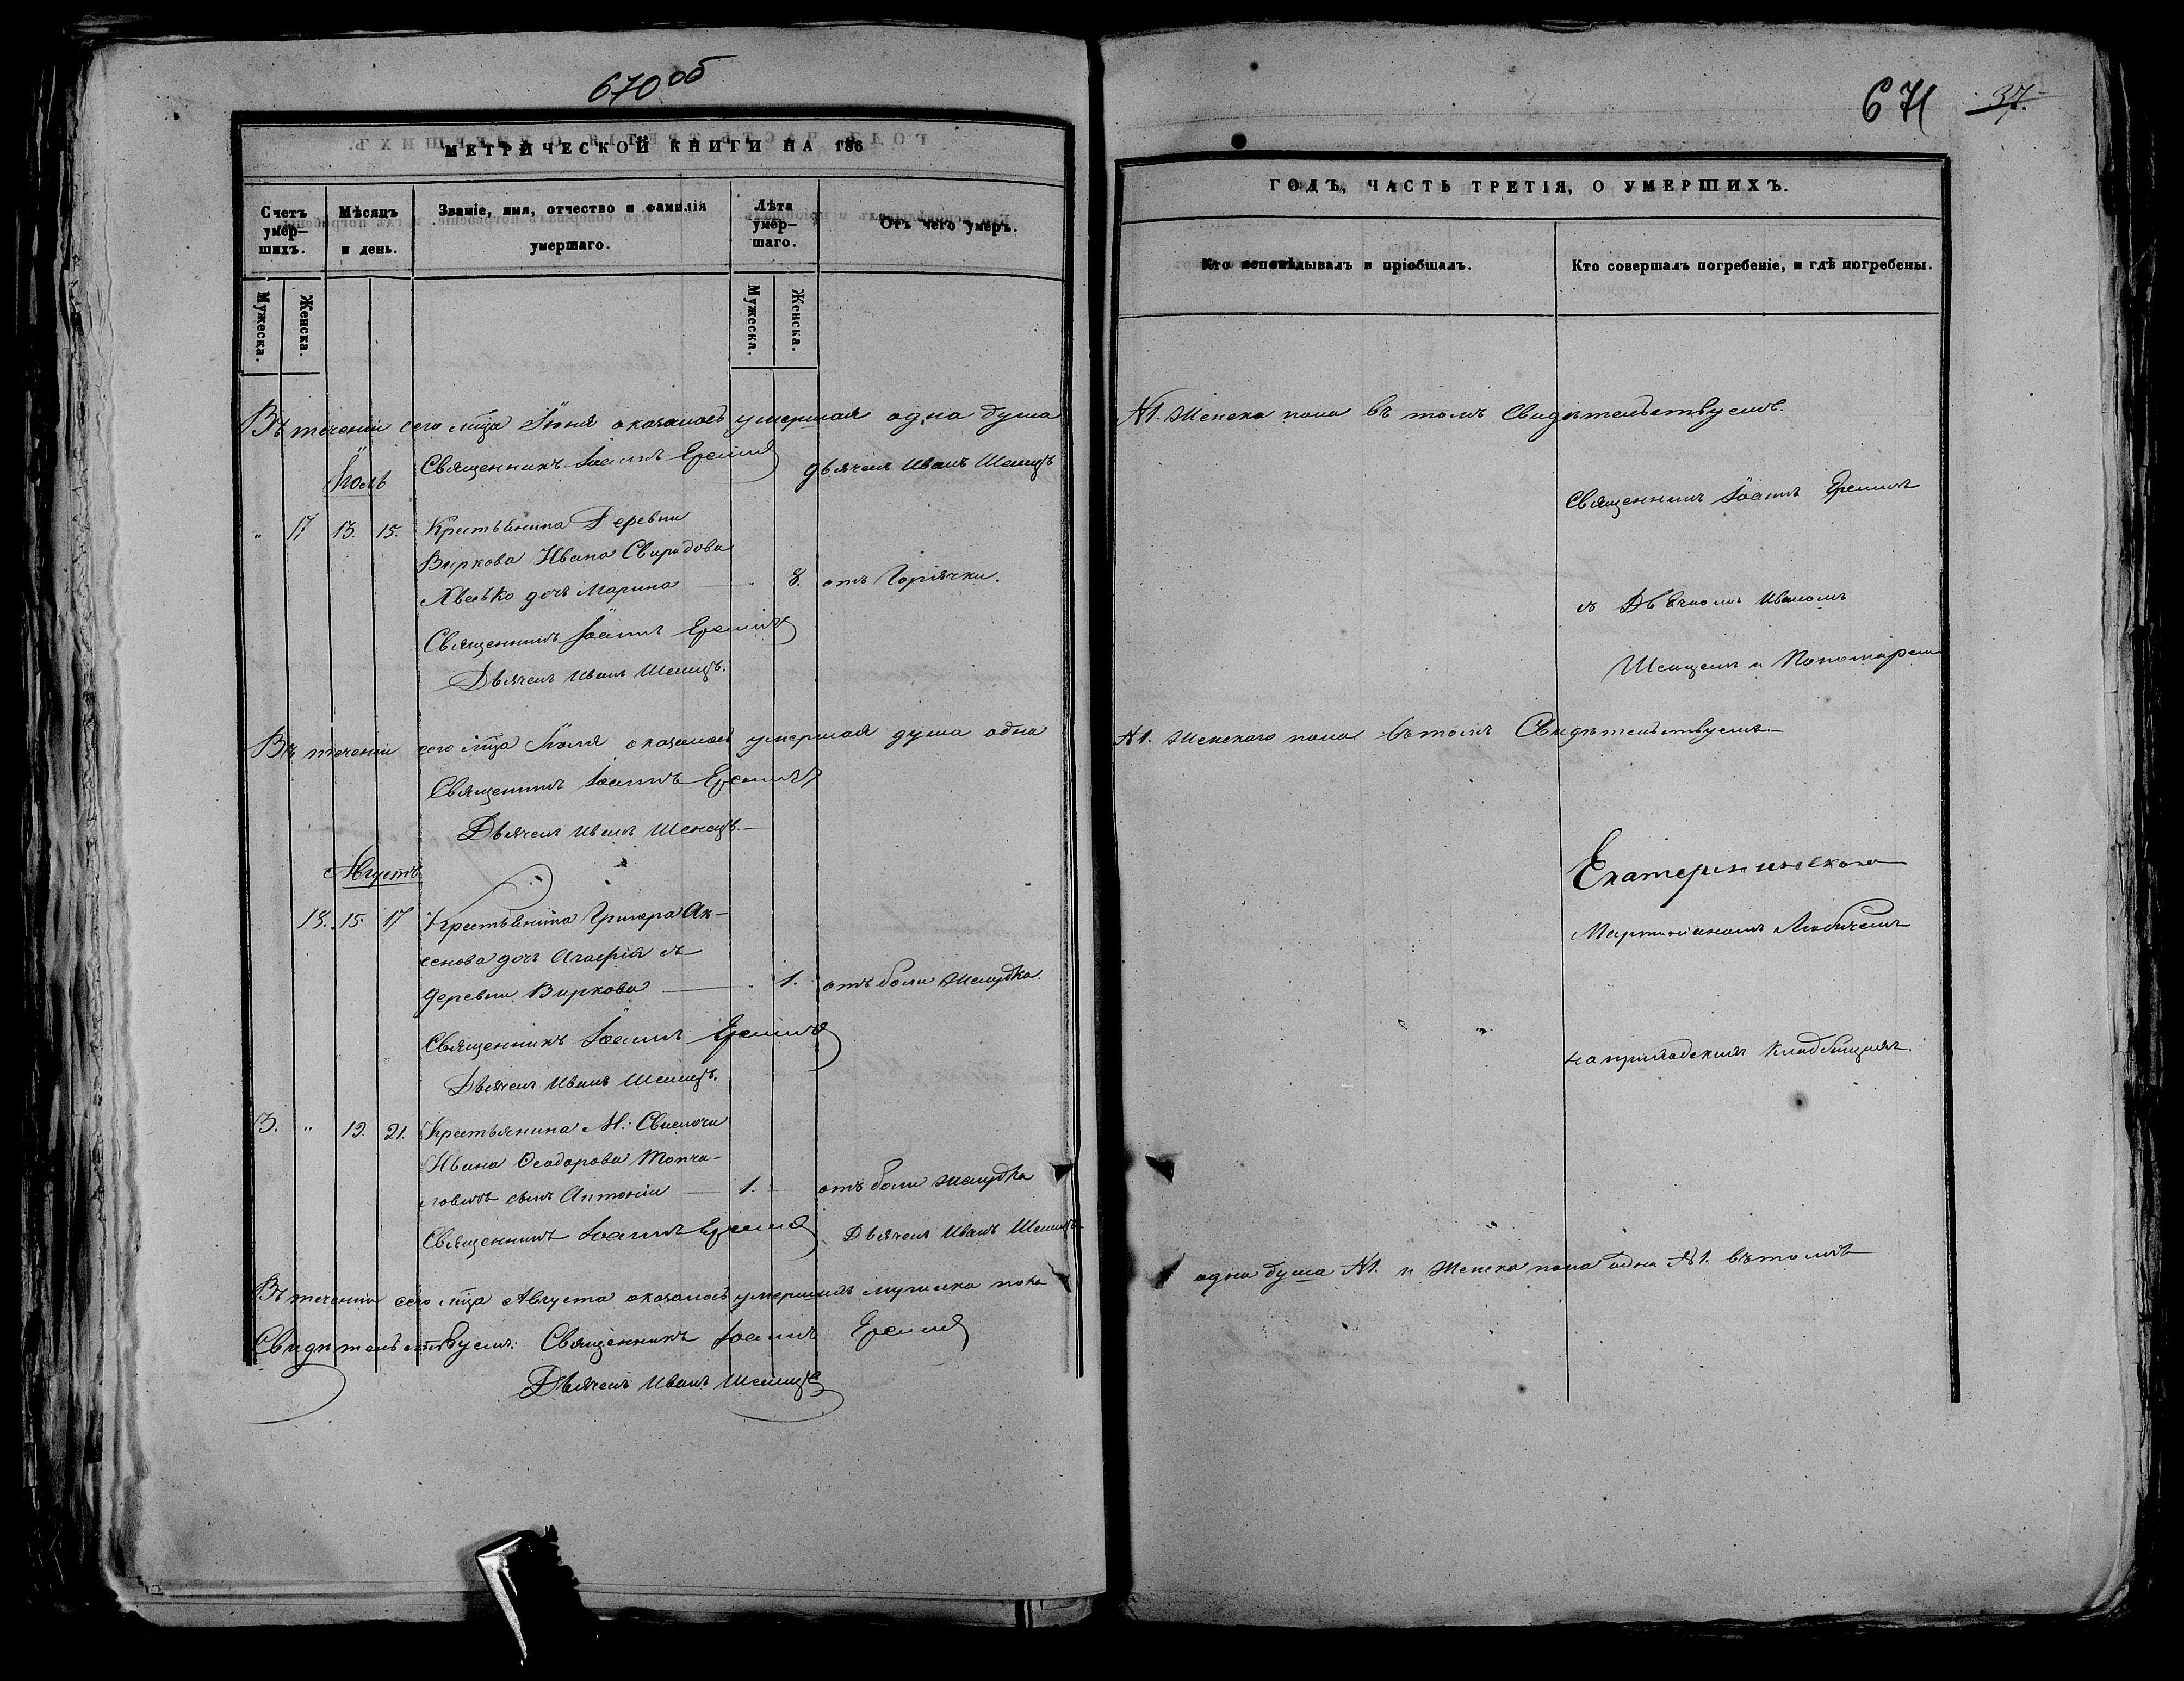 670 об
МЕТРИЧЕСКОЙ КНИГИ НА 186
Счетъ умер-шихъ.
Мѣсяцъ и день.
Званіе, имя, отчество и фамилія умершаго.
Лѣта умер-шаго.
Отъ чего умеръ.
Мужеска.
Женска.
Мужеска.
Женска.
Въ теченіи сего м-ца Іюня оказалось умершая одна душа
Священникъ Іоаннъ
Дьячекъ Иванъ
Іюль
" 17 13. 15. Крестьянина Деревни
Виркова Ивана Свиридова
дочь Марина 8. отъ Горячки.
Священникъ Іоаннъ
Дьячекъ Иванъ
Въ теченіи сего м-ца Іюля оказалось умершая душа одна
Священникъ Іоаннъ
Дьячекъ Иванъ
Августъ
18. 15. 17 Крестьянина Григора Ак-
сенова дочь Агафія съ
деревни Виркова 1. отъ боли желудка.
Священникъ Іоаннъ
Дьячекъ Иванъ
3. " 19. 21. Крестьянина М: Свислочи
Ивана Ѳеодорова
сынъ Антоній 1. отъ боли желудка
Священникъ Іоаннъ
Дьячекъ Иванъ
Въ теченіи сего м-ца Августа оказалось умершихъ мужеска пола
Свидѣтельствуемъ: Священникъ Іоаннъ
Дьячекъ Иванъ
671 37.
ГОДЪ, ЧАСТЬ ТРЕТІЯ, О УМЕРШИХЪ.
Кто исповѣдывалъ и пріобщалъ.
Кто совершалъ погребеніе, и гдѣ погребены.
№1. Женска пола въ томъ Свидѣтельствуемъ.
Священникъ Іоаннъ
съ Дьячкомъ Иваномъ
и Пономаремъ
№1. Женскаго пола въ томъ Свидѣтельствуемъ
Екатерининскаго
на приходскихъ кладбищахъ.
одна душа №1. и Женска пола одна №1. въ томъ